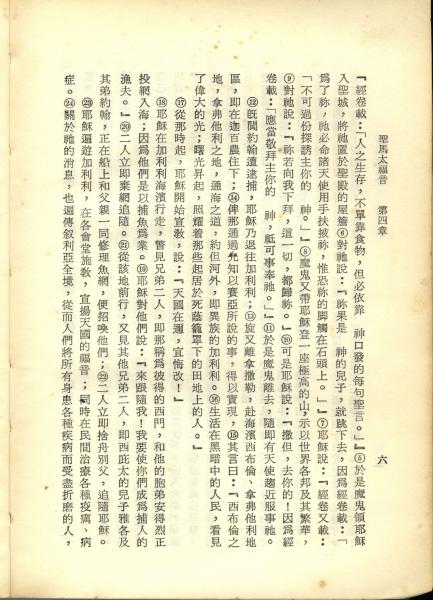 聖馬太福音　第四章　六
『經卷載：「人之生存，不單靠食物，但必依靠　神口發的每句聖言。」』⑤於是魔鬼領耶穌
入聖城，將祂置於聖殿的屋簷⑥對祂說：『祢果是　神的兒子，就跳下去，因爲經卷載：「
爲了祢，祂必命諸天使用手扶掖祢，惟恐祢的脚觸在石頭上。」』⑦耶穌說：『經卷又載：
「不可過份探誘主你的　神。」』⑧魔鬼又帶耶穌登一座極高的山，示以世界各邦及其繁華，
⑨對祂說：『祢若向我下拜，這一切，都歸祢。』⑩可是耶穌說：『撒但，去你的！因爲經
卷載：「應當敬拜主你的　神，祗可事奉祂。」』⑪於是魔鬼離去，隨卽有天使趨近服事祂。
⑫旣聞約翰遭逮捕，耶穌乃退往加利利；⑬旋又離拿撒勒，赴海濱西布倫、拿弗他利地
區，卽在迦百農住下；⑭俾那通過先知以賽亞所說的事，得以實現，⑮其言曰：『西布倫之
地，拿弗他利之地，通海之道，約但河外，卽異族的加利利。⑯生活在黑暗中的人民，看見
了偉大的光；曙光昇起，照耀着那些起居於死蔭籠罩下的田地上的人。』
⑰從那時起，耶穌開始宣敎，說：『天國在邇，宜悔改！』
⑱耶穌在加利利海濱行走，瞥見兄弟二人，卽那稱爲彼得的西門，和他的胞弟安得烈正
投網入海；因爲他們是以捕魚爲業。⑲耶穌對他們說：『來跟隨我！我要使你們成爲捕人的
漁夫。』⑳二人立卽棄網追隨。㉑從該地前行，又見其他兄弟二人，卽西庇太的兒子雅各及
其弟約翰，正在船上和父親一同修理魚網，便招喚他們；㉒二人立卽捨舟別父，追隨耶穌。
㉓耶穌遍遊加利利，在各會堂施敎，宣揚天國的福音；同時在民間治療各種疫癘、病
症。㉔關於祂的消息，也遍傳叙利亞全境，從而人們將所有身患各種疾病而受盡折磨的人，